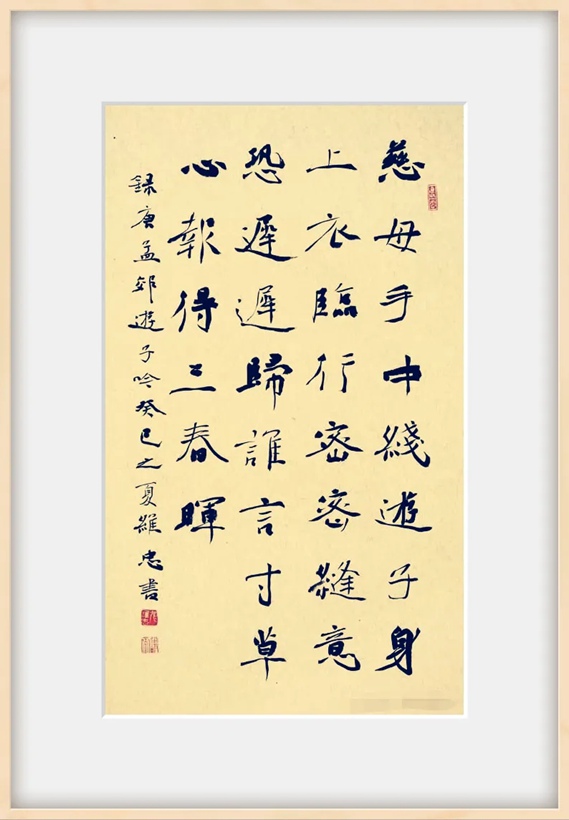 慈母手中綫遊子身
上衣臨行密密縫意
恐遲遲歸誰言寸草
心報得三春暉
録唐孟郊遊子吟癸巳之夏維忠書